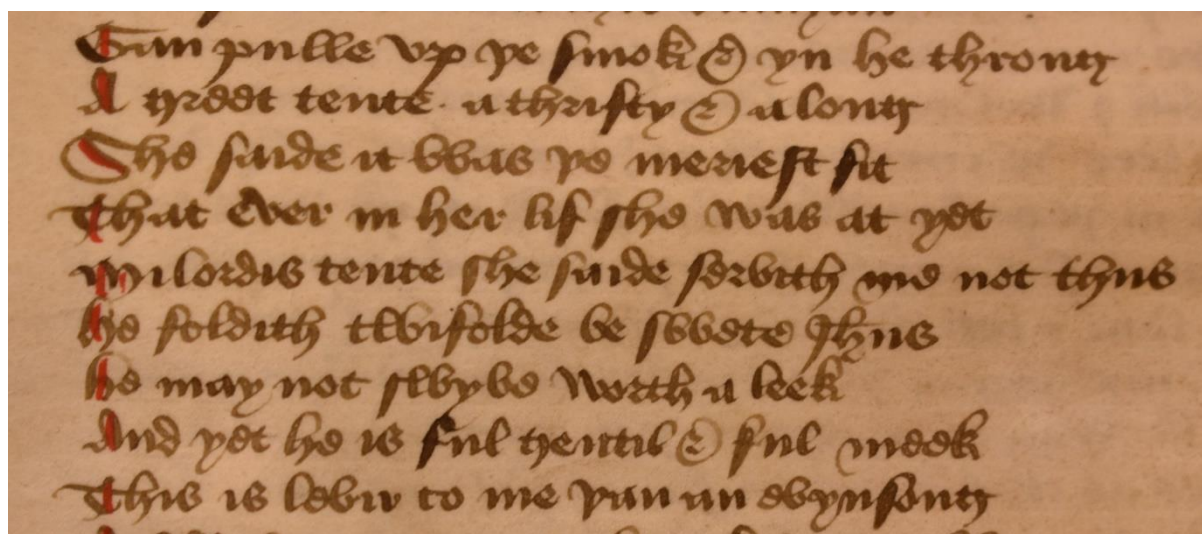 Gan pulle vp þe smok & yn he throng
A greet tente a thrifty & a long
She saide it was þe meriest fit
That ever in her lif she was at yet
My lordis tente she saide servith me not thus
He foldith twifolde be swete Jhus
He may not swyve worth a leek
And yet he is ful gentil & ful meek
This is levir to me þan an evynsong